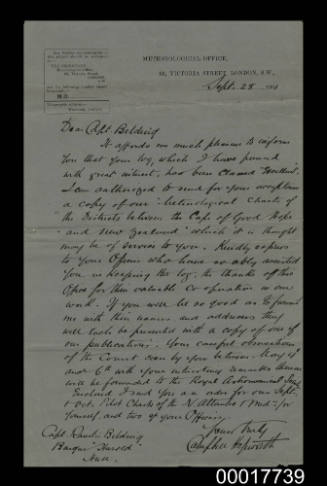 METEOROLOGICAL OFFICE,
63, VICTORIA STREET, LONDON, S.W.,
Sept. 28
Dear Capt. Belding
It affords me much pleasure to inform
you that your log, which I have perused
with great interest, has been classed "Excellent".
I am authorized to send for your acceptance
a copy of our "Meteorological Charts of
the Districts between the Cape of Good Hope
and New Zealand" which it is thought
may be of service to you. Kindly express
to your Officers who have so ably assisted
you in keeping the log, the thanks of this
Office for their valuable Co-operation in our
work. If you will be so good as to furnish
me with their names and addresses they
will each be presented with a copy of one of
our publications. Your careful observations
of the Comet seen by you between May 1st
and 6th with your interesting remarks thereon
will be forwarded to the Royal Astronomical Socy.
Enclosed I send you an order for our Sept.
& Oct. Pilot Charts of the N. Atlantic & Med: for
yourself and two of your Officers.
Yours truly
Campbell Hepworth
Capt. Belding
Barque "Harold"
Hull.
00017739